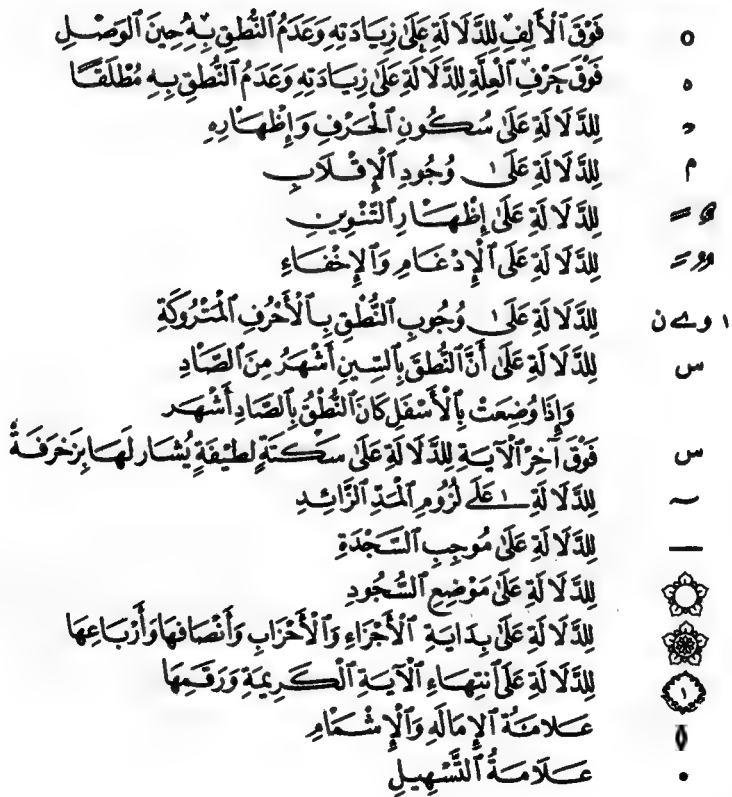 ه فَوْقَ ٱلْأَلِفِ لِلدَّلَالَةِ عَلَىٰ زِيَادَتِهِ وَعَدَمُ ٱلنُّطْقِ بِهِ حِينَ ٱلْوَصْلِ
ه فَوْقَ حَرْفِ ٱلْعِلَّةِ لِلدَّلَالَةِ عَلَىٰ زِيَادَتِهِ وَعَدَمُ ٱلنُّطْقِ بِهِ مُطْلَقًا
لِلدَّلَالَةِ عَلَىٰ سُكُونِ ٱلْحَرْفِ وَإِظْهَارِهِ
م لِلدَّلَالَةِ عَلَىٰ وُجُودِ ٱلْإِقْلَابِ
لِلدَّلَالَةِ عَلَىٰ إِظْهَارِ ٱلتَّنْوِينِ
لِلدَّلَالَةِ عَلَىٰ ٱلْإِدْغَامِ وَٱلْإِخْفَاءِ
ا و ے ن لِلدَّلَالَةِ عَلَىٰ وُجُوبِ ٱلنُّطْقِ بِٱلْأَحْرُفِ ٱلْمَتْرُوكَةِ
س لِلدَّلَالَةِ عَلَىٰ أَنَّ ٱلنُّطْقَ بِٱلسِّينِ أَشْهَرُ مِنَ ٱلصَّادِ
وَإِذَا وُضِعَتْ بِٱلْأَسْفَلِ كَانَ ٱلنُّطْقُ بِٱلصَّادِ أَشْهَر
س فَوْقَ آخِرِ ٱلْآيَةِ لِلدَّلَالَةِ عَلَىٰ سَكْتَةٍ لَطِيْفَةٍ يُشَار لَهَا بِزَخْرَفَةٌ
~ لِلدَّلَالَةِ عَلَىٰ لُزُومِ ٱلْمَدِّ ٱلزَّائِدِ
— لِلدَّلَالَةِ عَلَىٰ مُوجِبِ ٱلسَّجْدَةِ
لِلدَّلَالَةِ عَلَىٰ مَوْضِعِ ٱلسُّجُودِ
لِلدَّلَالَةِ عَلَىٰ بِدَايَةِ ٱلْأَجْزَاءِ وَٱلْأَحْزَابِ وَأَنْصَافِهَا وَأَرْبَاعِهَا
١ لِلدَّلَالَةِ عَلَىٰ ٱنتِهَاءِ ٱلْآيَةِ ٱلْكَرِيمَةِ وَرَقَمِهَا
عَلَامَةُ ٱلْإِمَالَهِ وَٱلْإِشْمَامِ
• عَلَامَةُ ٱلتَّسْهِيلِ